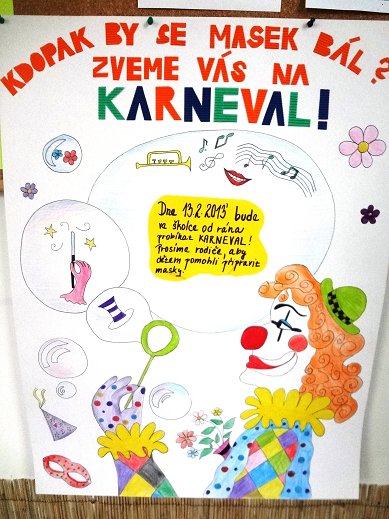 KDOPAK BY SE MASEK BÁL?
ZVEME VÁS NA
KARNEVAL!
Dne 13.2.2013 bude
ve školce od rána
probíhat KARNEVAL!
Prosíme rodiče, aby
dětem pomohli připravit
masky.